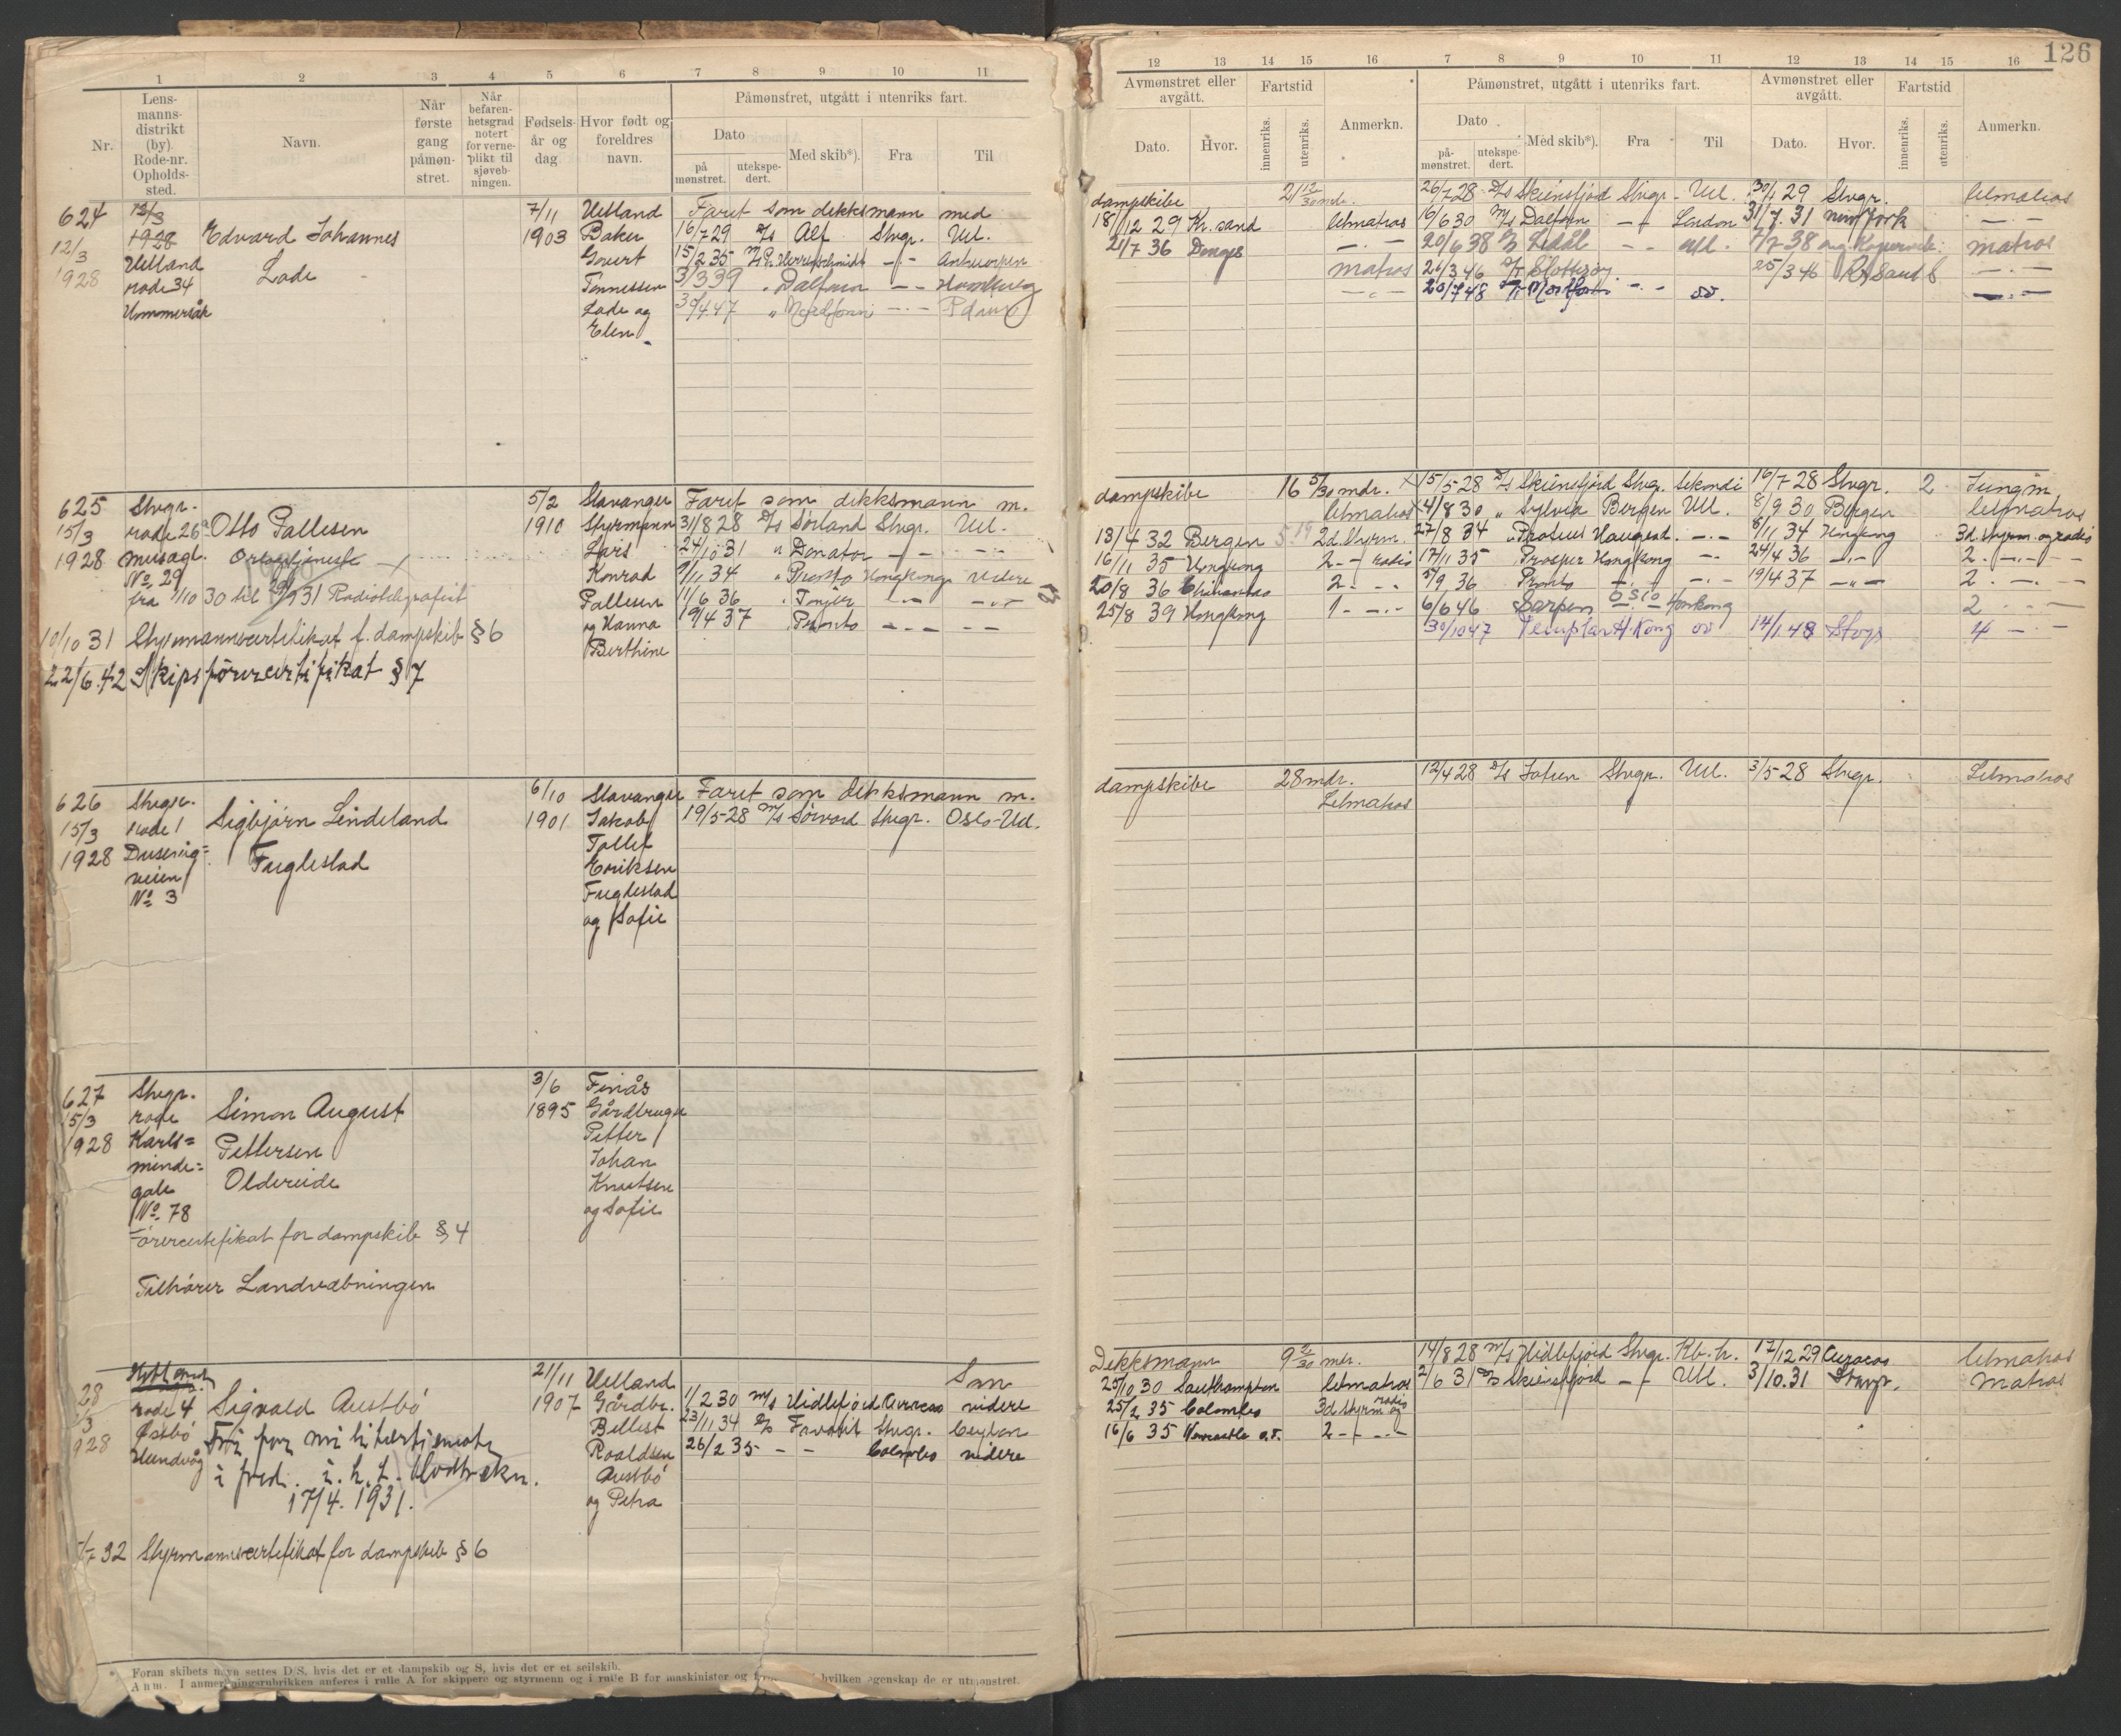 126
1 2 3 4 5 6 7 8 9 10 11
12 13 14 15 16 7 8 9 10 11 12 13 14 15 16
Nr.
Lens-
manns-
distrikt
(by).
Rode-nr.
Opholds-
sted.
Navn.
Når
første
gang
påmøn-
stret.
Når
befaren-
hetsgrad
notert
for verne-
plikt til
sjøveb-
ningen.
Fødsels-
år og
dag.
Hvor født og
foreldres
navn.
Påmønstret, utgått i utenriks fart.
Dato
på
mønstret.
utekspe-
dert.
Med skib*).
Fra
Til
Avmønstret eller
avgått.
Dato.
Hvor.
Fartstid
innenriks.
utenriks.
Anmerkn.
Påmønstret, utgått i utenriks fart.
Dato
på-
mønstret.
utekspe-
dert.
Med skib*).
Fra
Til
Avmønstret eller
avgått.
Dato.
Hvor.
Fartstid
innenriks.
utenriks.
Anmerkn.
624
12/3
1928
12/3
1928
Hetland
rode 34
Hommersåk
Edvard Johannes
Lode
7/11
1903
Hetland
Baker
Govert
Tønnessen
Lode og
Elen
Faret som dekksmann med
16/7 29 D/s Alf Stvgr. Utl.
15/2 35 - - Antwerpen
3/3 39 " Dalfonn - - Hamburg
30/4 47 " Nordfonn - - -
dampskibe 21 12/30 mdr.
18/12 29 Kr. sand letmatros
21/7 36 - . -
matros
26/7 28 D/s Skiensfjord Stvgr - Utl. 30/1 29 Stvgr. letmatros
16/6 30 M/s Dalfonn - " - London 31/7. 31 New York - . -
20/6 38 - - Utl. 7/7 38 matros
26/3 46 25/3 46 - . -
20/7 48 - . -
625
15/3
1928
Stvgr.
rode 26a
musegt.
No 29
Otto Pallesen
fra 1/10 30 til 31 Radiotelegrafist
10/10 31 Styrmannscertifikat f. dampskib § 6
22/6.42 Skipsførercertifikat § 7
5/2
1910
Stavanger
Styrmann
Lars
Konrad
Pallesen
og Hanna
Berthine
Faret som dekksmann m.
31/8 28 D/s Sørland Stvgr. Utl.
24/10 31 " Donator - " - - - -
9/11 34 " Pronto Hongkong videre
11/6 36 " - . - - . -
19/4 37 " Pronto - - - -
dampskibe 16 5/30 mdr.
letmatros
18/4 32 Bergen 2d. Styrm.
16/11 35 Hongkong 2 - - radio
20/8 36 2 - . -
25/8 39 Hongkong 1 - . -
15/5-28 D/s Skiensfjord Stvgr. 16/7 28 Stvgr. 2 Jungm
4/8 30 " Sylvia Bergen Utl. 8/9 30 Bergen letmatros
27/8 34 " Proteus Haugesd. - . - 8/11 34 Hongkong 3d. styrm. og radio
17/11 35 Prosper Hongkong - . - 24/4 36 - . - 2. - . -
5/9 36 Pronto - . - - . - 19/4 37 - . - 2. - . -
6/6 46 Sarpen Oslo - Honkong 2 - . -
30/10 47 Templar H. Kong 14/1.48 Stvgr 4 - . -
626
15/3
1928
Stvgr.
rode 1
Dusevig=
veien
No 3
Sigbjørn Lindeland
Fuglestad
6/10
1901
Stavanger
Jakob
Tollef
Eriksen
Fuglestad
og Sofie
Faret som dekksmann m.
19/5-28 M/s Sørvard Stvgr. Oslo-Utl.
dampskibe 28 mdr.
Letmatros
12/4 28 D/s Stvgr. Utl. 3/5-28 Stvgr. Letmatros
627
15/3
1928
Stvgr.
rode
Karls=
minde=
gate
No. 78
Simon August
Pettersen
Oldereide
Førercertifikat for dampskib § 4
Tilhører Landvæbningen
3/6
1895
Finås
Gårdbruger
Petter
Johan
Knutsen
og Sofie
28
/3
928
Hetland
rode 4
Østbø
Hundvåg
Sigvald Austbø
Fri for militærtjeneste
i fred. i. h. t.
17/4. 1931.
/7 32 Styrmannscertifikat for dampskib § 6
21/11
1907
Hetland
Gårdbr.
Bellest
Roaldsen
Austbø
og Petra
Som
1/2 30 M/s Hidlefjord Curacao videre
23/11 34 D/s Favorit Stvgr. Ceylon
26/2 35 - - Colombo videre
Dekksmann 9 2/30 mdr.
25/10 30 Southampton letmatros
25/2 35 Colombo 3d styrm og radio
16/6 35 Newcastle 2 - - . -
14/8 28 M/s Hidlefjord Stvgr. Kb. h. 17/12 29 Curacao letmatros
2/6 31 D/s Skiensfjord - " - Utl. 3/10.31 Stvgr. matros
* Foran skibets navn settes D/S, hvis det er et dampskib og S, hvis det er et seilskib.
Anm. I anmerkningsrubrikken anføres i rulle A for skippere og styrmenn og i rulle B for maskinister og hvilken egenskap de er utmønstret.